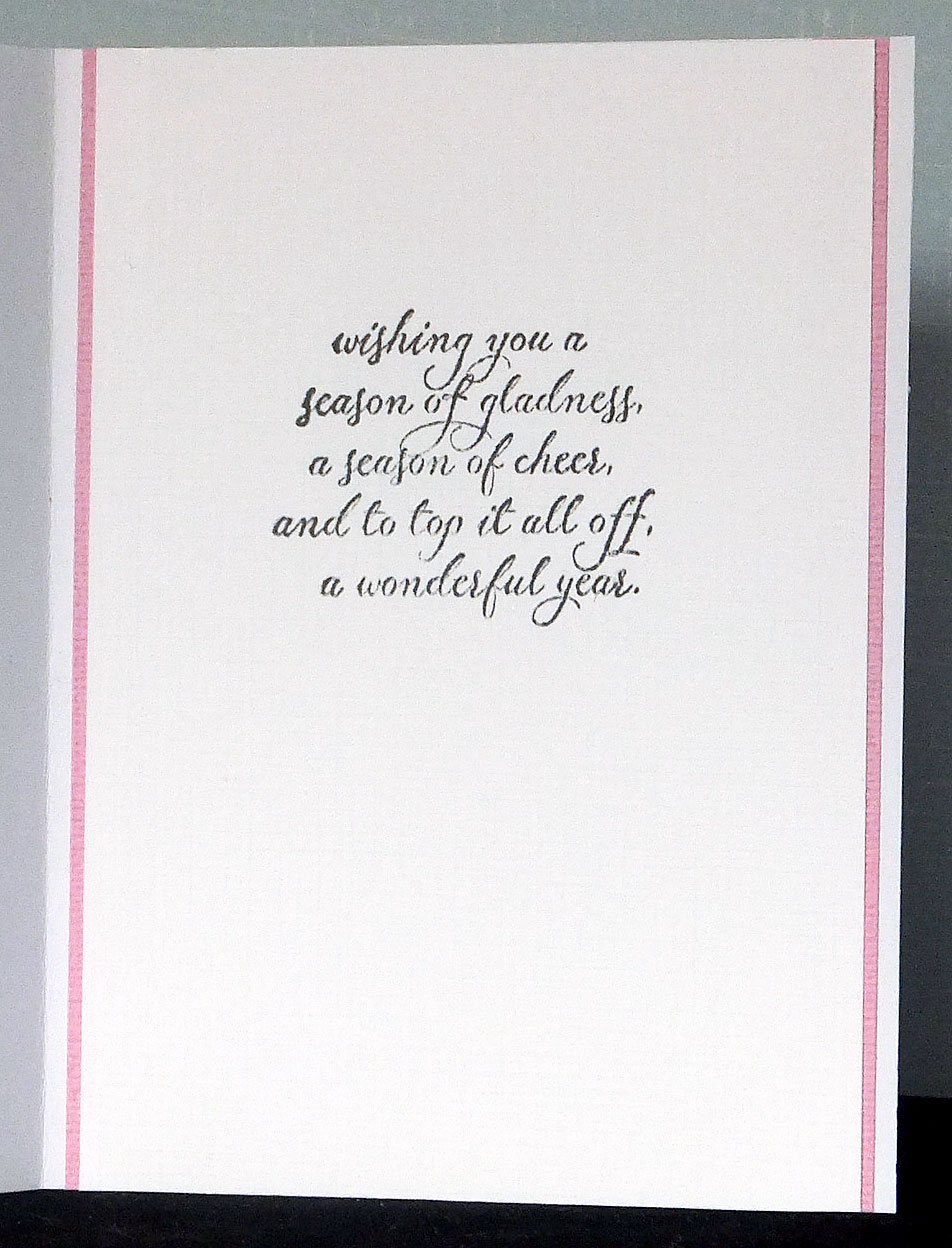 wishing you a
season of gladness,
a season of cheer,
and to top it all off,
a wonderful year.